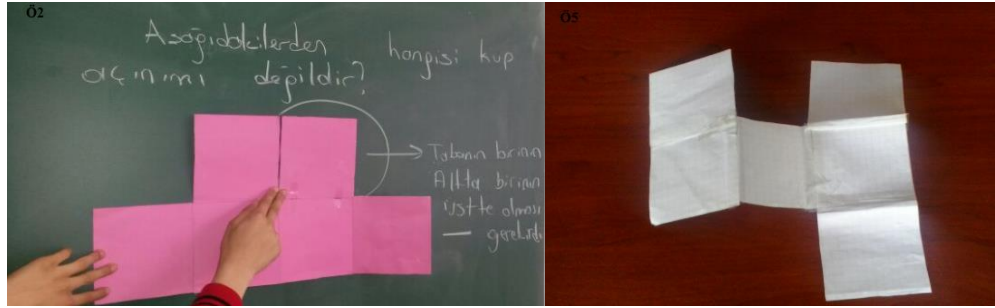 Ö2
Aşağıdakilerden hangisi küp
açınımı değildir?
Tabanın birinin
Altta birinin
üstte olması
gerekirdi
Ö5